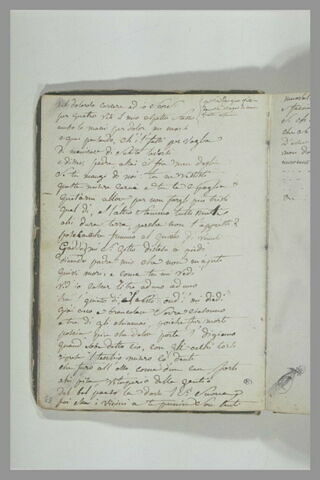 nel doloroso carcere ed io scorsi
per quattro visi il mio aspetto stesso
ambo le mani per dolor mi morsi
e quei pensando, ch'i'l fessi per voglia
di manicar di subito
e disser padre assai ci fia men doglia
se tu mangi di noi: tu ne vestisti
queste misere carni e tu le spoglia
Quetaimi allor per non fargli più tristi
quel dì, e l'altro stemmo tutti muti
ahi dura terra, perchè non t'apristi
posciachè fummo al quarto dì venuti
Gaddo mi si gettò disteso a' piedi
dicendo padre mio che non m'ajuti
Quivi morì: e come tu mi vedi
vid'io cascar li tre ad uno ad uno
tra'l quinto dì, e'l sesto: ond'i' mi diedi
già cieco a brancolar sovra ciascuno
e tre dì gli chiamai poichè fur morti
poscia più che'l dolor potè'l digiuno
Quand'ebbe detto ciò, con gli occhi torti
riprese il teschio misero co' denti
che furo all'osso come d'un can forti
ahi pisa vituperio delle genti
del bel paese la dove 'l sì suona
poi che i vicini a te punir son lenti